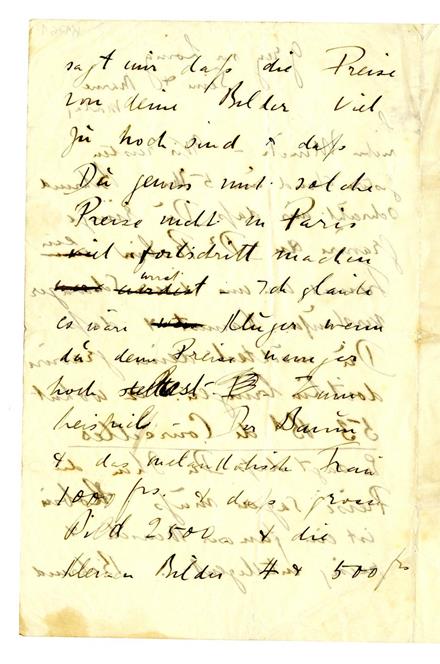 sagt mir dass die Preise
von deine Bilder viel
zu hoch sind & dass
Du gewiss mit solche
Preise nicht in Paris
viel fortschritt machen
wirst - Ich glaube
es wäre klüger wenn
du dein Preise weniger
hoch stellst. Zum
beispiel Der Baum
& das melancholische Frau
1000 frs. & das grosse
Bild 2500 & die
kleinen Bilder 4 & 500 frs